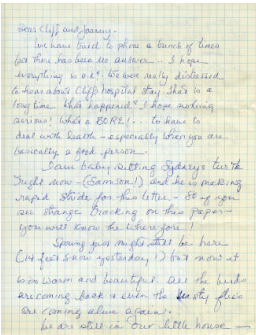 Dear Cliff and Joanny -
We have tried to phone a bunch of times
but there has been no answer -- I hope
everything is o.k. We were really distressed
to hear about Cliff's hospital stay. That's a
long time. What happened? I hope nothing
serious! What a BORE! -- to have to
deal with health - especially when you are
basically a good person.
I am baby sitting Sydney's turtle
right now - (Samson!) and he is making
rapid strides for this letter - So if you
see strange tracking on this paper -
you will know the wherefore!
Spring just might still be here
(14 feet snow yesterday!) but now it
is so warm and beautiful. All the birds
are coming back & even the flies
are coming alive again.
We are still in our little house -